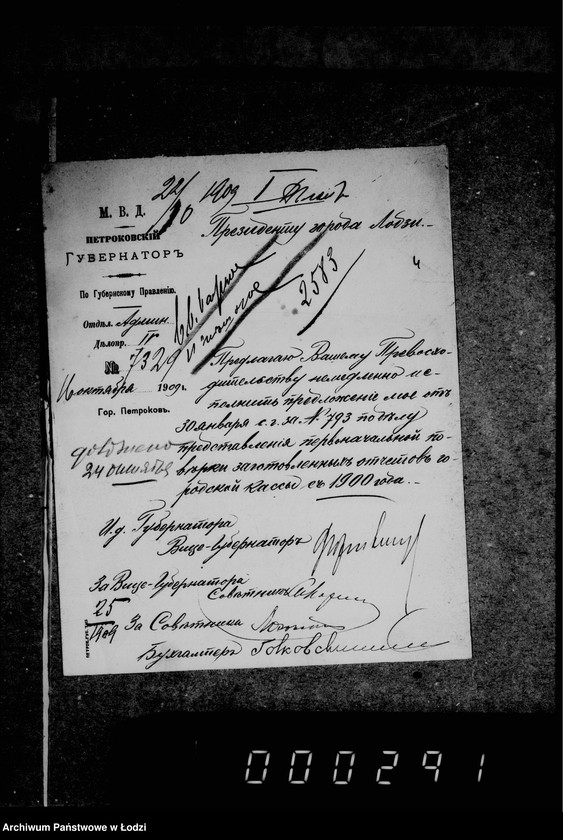 22/10 1909 I
М. В. Д.
ПЕТРОКОВСКІЙ
ГУБЕРНАТОРЪ
По Губернскому Правленію.
Отдѣл. Админ
Дѣлопр. II
№ 7329
октября 1909 г.
Гор. Петроковъ.
доложено
24 октября
Президенту города Лодзи.
2583
Предлагаю Вашему Превосхо-
дительству немедленно ис-
полнить предложеніе мое отъ
30 января с. г. за № 793 по дѣлу
представленія первоначальной по-
вѣрки заготовленныхъ отчетовъ го-
родской кассы съ 1900 года.
И. д. Губернатора
Вице-Губернаторъ
За Вице-Губернатора
Совѣтникъ
25
1909
За Совѣтника
Бухгалтеръ
000291
Archiwum Państwowe w Łodzi